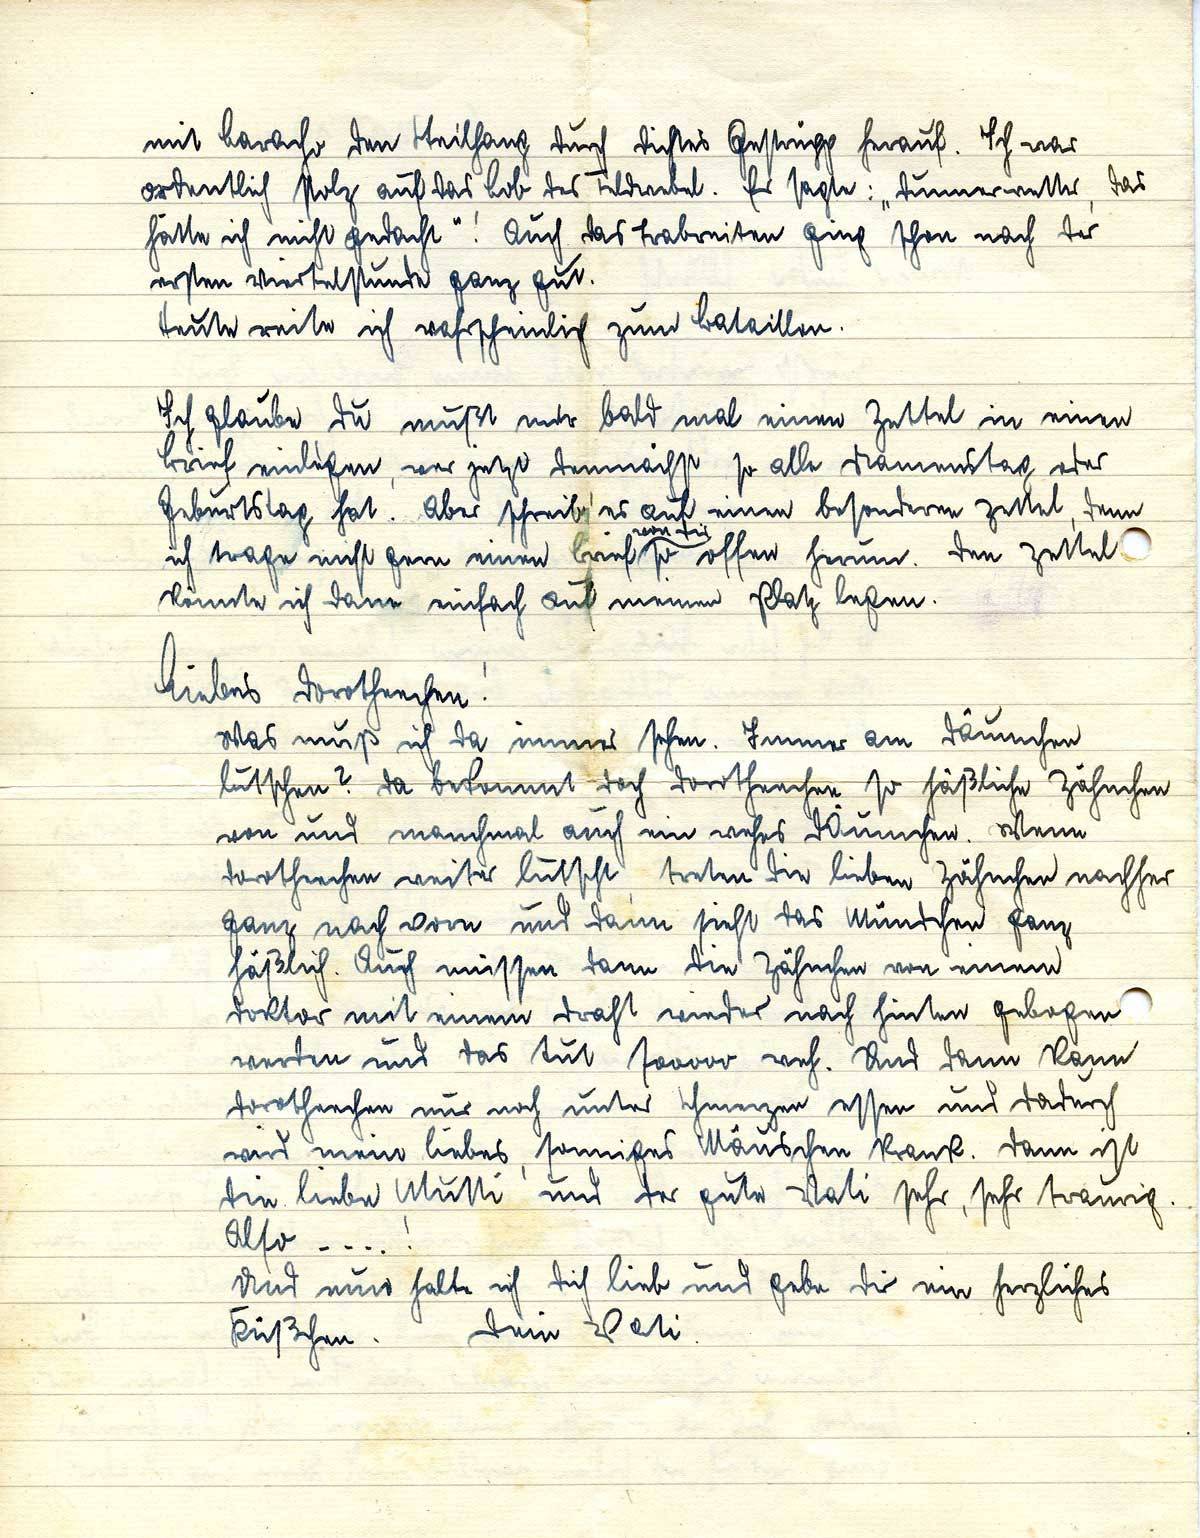 mit Caracho den Steilhang durch dichtes Gestrüpp herauf. Ich war
ordentlich stolz auf das Lob des Feldwebel. Er sagte: „Dunnerwetter, das
hätte ich nicht gedacht"! Auch das Trabreiten ging schon nach der
ersten Viertelstunde ganz gut.
Heute reite ich wahrscheinlich zum Bataillon.
Ich glaube Du mußt mir bald mal einen Zettel in einen
Brief einlegen, wer jetzt demnächst so alle Namenstag oder
Geburtstag hat. Aber schreib' es auf einen besonderen Zettel, denn
ich trage nicht gern einen Brief von Dir so offen herum. Den Zettel
könnte ich dann einfach auf meinen Platz legen.
Liebes Dorotheechen!
Was muß ich da immer sehen. Immer am Däumchen
lutschen? Da bekommt doch Dorotheechen so häßliche Zähnchen
von und manchmal auch ein wehes Däumchen. Wenn
Dorotheechen weiter lutscht, treten die lieben Zähnchen nachher
ganz nach vorn und dann sieht das Mündchen ganz
häßlich. Auch müssen dann die Zähnchen von einem
Doktor mit einem Draht wieder nach hinten gebogen
werden und das tut sooooo weh. Und dann kann
Dorotheechen nur noch unter Schmerzen essen und dadurch
wird mein liebes, sonniges Mäuschen krank. Dann ist
die liebe Mutti und der gute Vati sehr, sehr traurig.
Also ----!
Und nun halte ich Dich lieb und gebe Dir ein herzliches
Küßchen. Dein Vati.